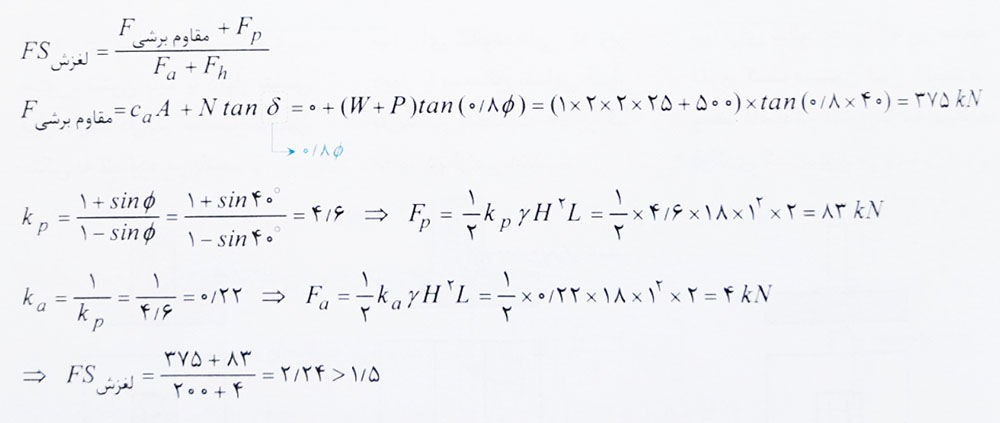 FS لغزش = (F مقاوم برشی + F_p) / (F_a + F_h)
F مقاوم برشی = c_a A + N tan δ = ۰ + (W + P) tan (۰/۸φ) = (۱×۲×۲×۲۵ + ۵۰۰) × tan (۰/۸ × ۴۰) = ۳۷۵ kN
۰/۸φ
k_p = (۱ + sinφ) / (۱ − sinφ) = (۱ + sin۴۰°) / (۱ − sin۴۰°) = ۴/۶ ⇒ F_p = ۱/۲ k_p γ H^۲ L = ۱/۲ × ۴/۶ × ۱۸ × ۱^۲ × ۲ = ۸۳ kN
k_a = ۱/k_p = ۱/(۴/۶) = ۰/۲۲ ⇒ F_a = ۱/۲ k_a γ H^۲ L = ۱/۲ × ۰/۲۲ × ۱۸ × ۱^۲ × ۲ = ۴ kN
⇒ FS لغزش = (۳۷۵ + ۸۳) / (۲۰۰ + ۴) = ۲/۲۴ > ۱/۵